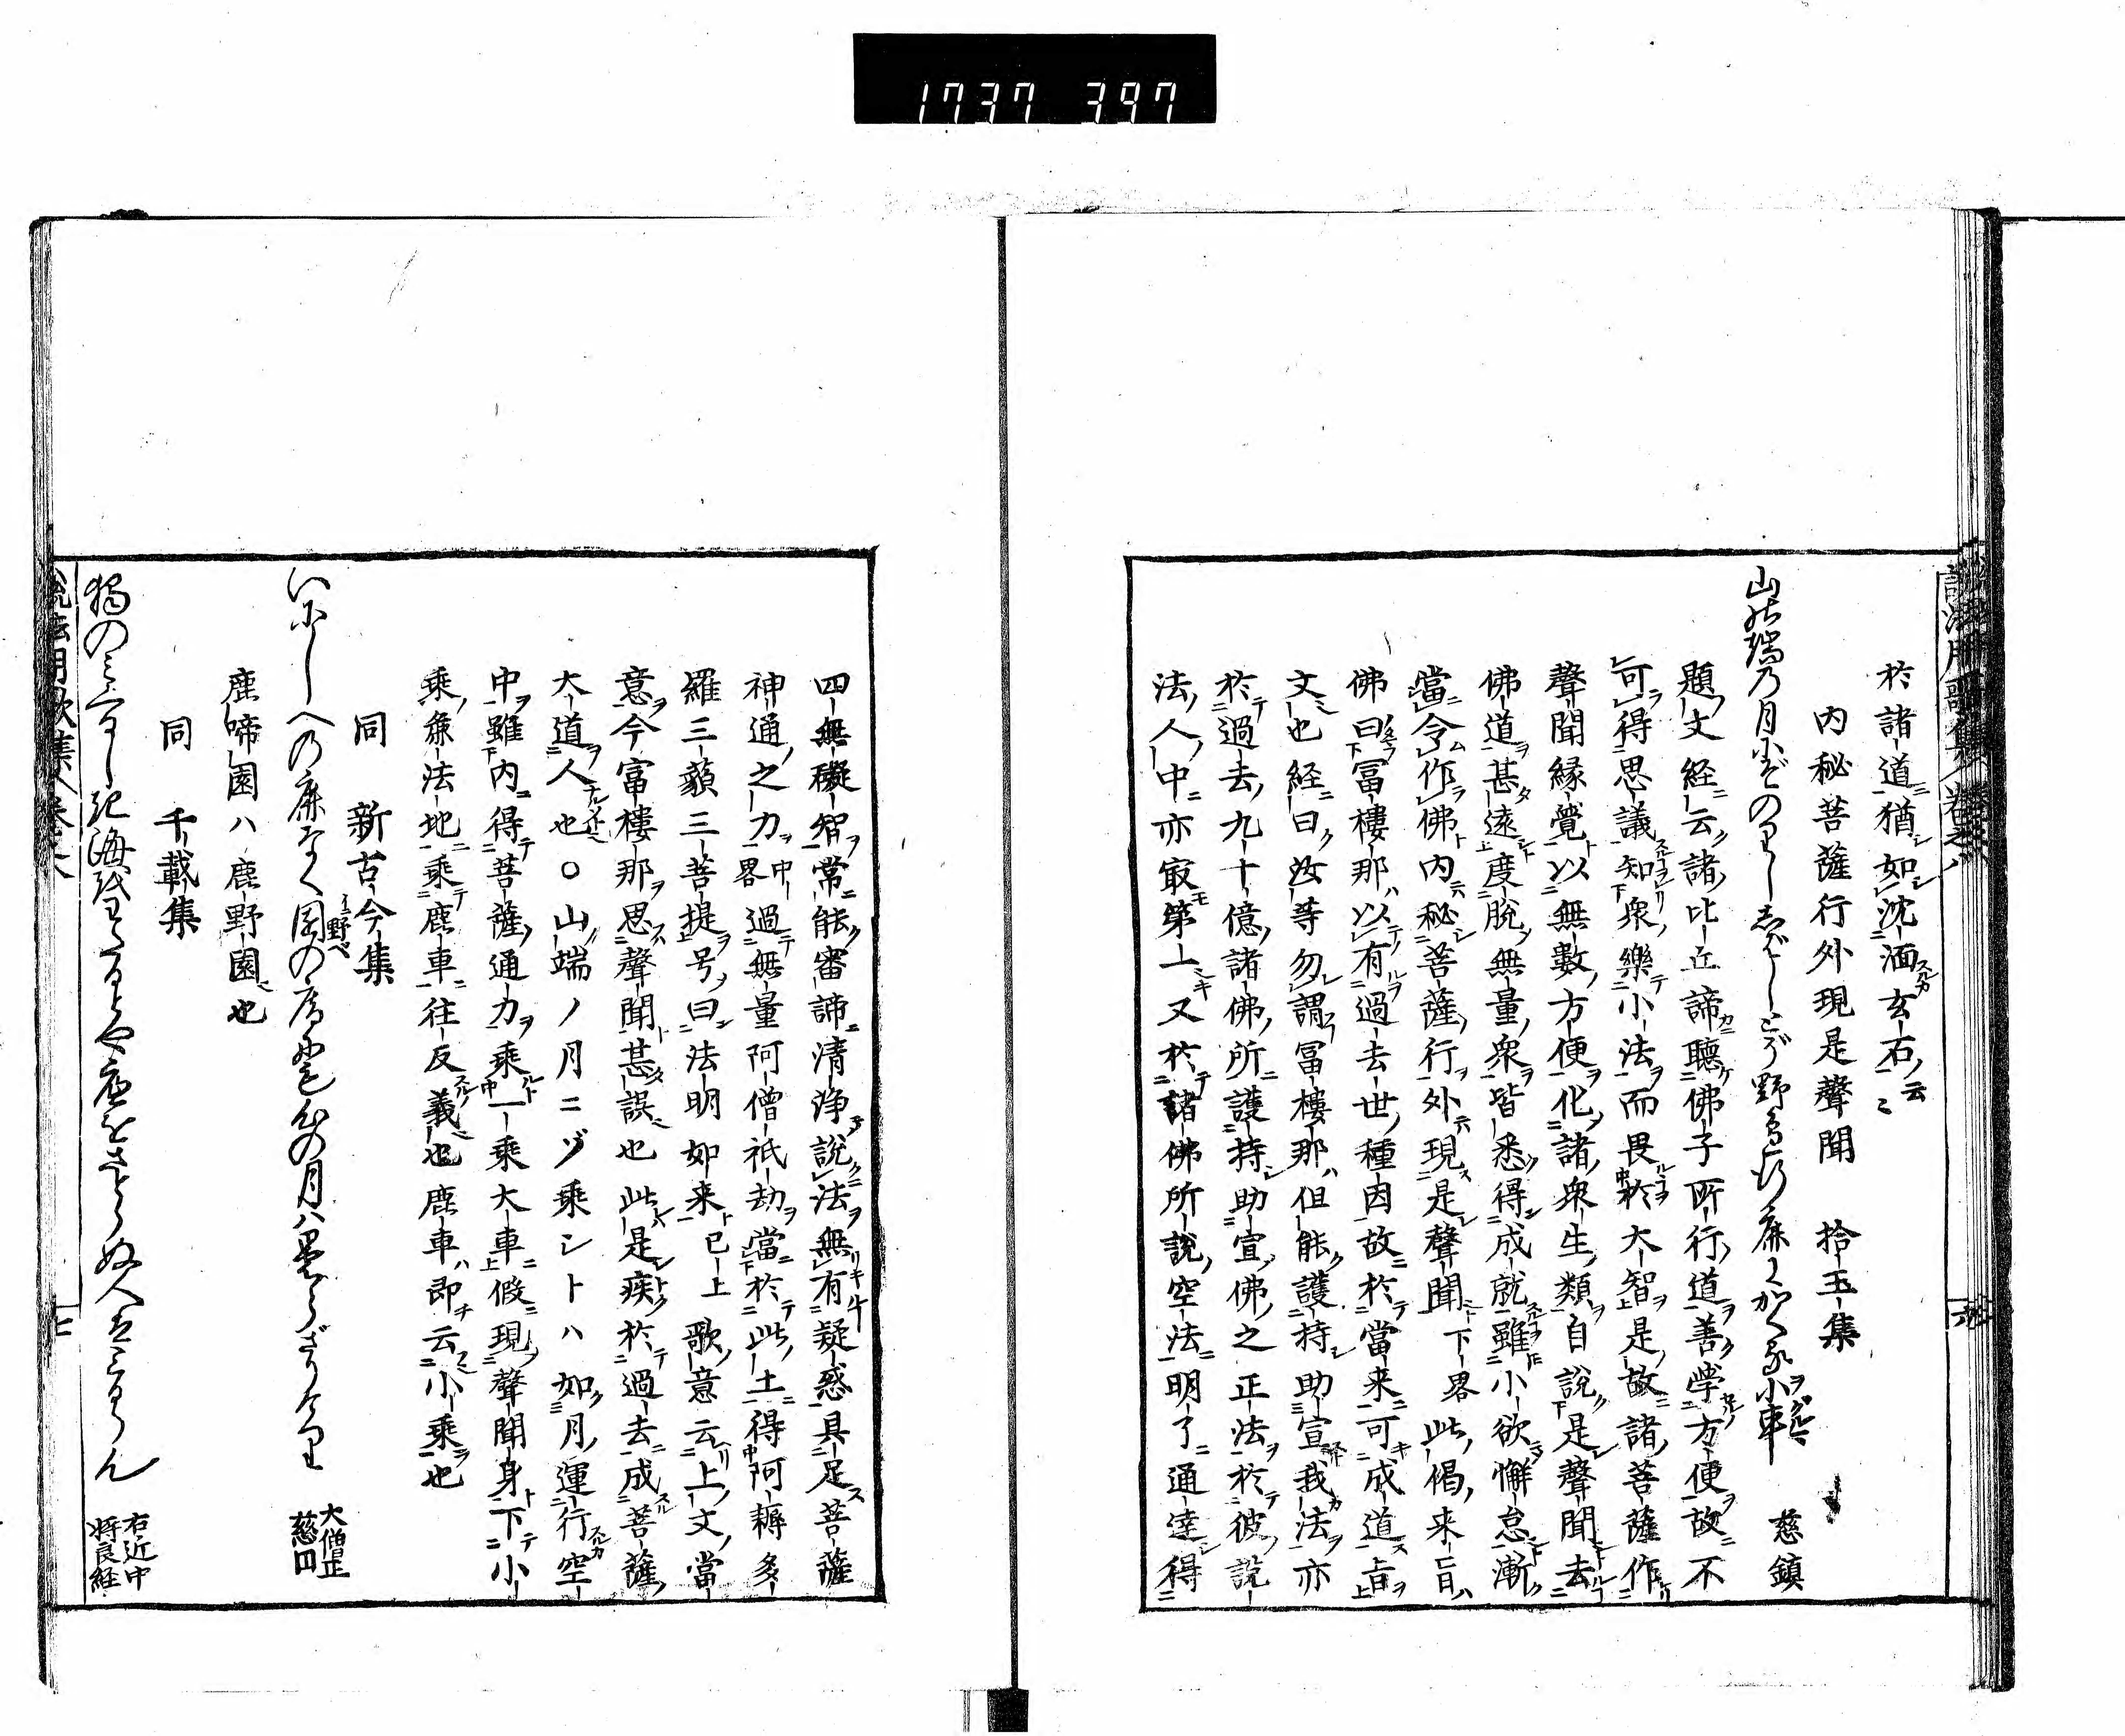 1737 397
説法用歌集 巻之八 六
於諸道猶如沈湎玄石云々
内秘菩薩行外現是聲聞 拾玉集
山の端の月にぞのりししばしこそ野
小車 慈鎮
題文経云諸比丘諦聽佛子所行道善学方便故不
可得思議知衆樂小法而畏於大智是故諸菩薩作
聲聞縁覺以無數方便化諸衆生類自説是聲聞去
佛道甚遠度脱無量衆皆悉得成就雖小欲懈怠漸
當令作佛内秘菩薩行外現是聲聞下畧此偈来旨
佛曰冨樓那以有過去世種因故於當来可成道旨
文也経曰汝等勿謂冨樓那但能護持助宣我法亦
於過去九十億諸佛所護持助宣佛之正法於彼説
法人中亦㝡第一又於諸佛所説空法明了通達得
四無礙智常能審諦清浄説法無有疑惑具足菩薩
神通之力中畧過無量阿僧祇劫當於此土得阿耨多
羅三藐三菩提号曰法明如来已上歌意云上文當
意今富樓那思聲聞甚誤也此是疾於過去成菩薩
大道人也〇山端ノ月ニゾ乗シトハ如月運行空
中雖内得菩薩通力乘一乘大車假現聲聞身下小
乗兼法地乗鹿車往反義也鹿車ハ即云小乗也
同 新古今集
いにしへの鹿なく園の庵にも心の月はくもらざりけり 大僧正慈円
野べ
鹿啼園ハ鹿野園也
同 千載集
獨のみくるしき海をわたるとや底をさとらぬ人はみるらん 右近中将良経
説法用歌集 巻之八 七